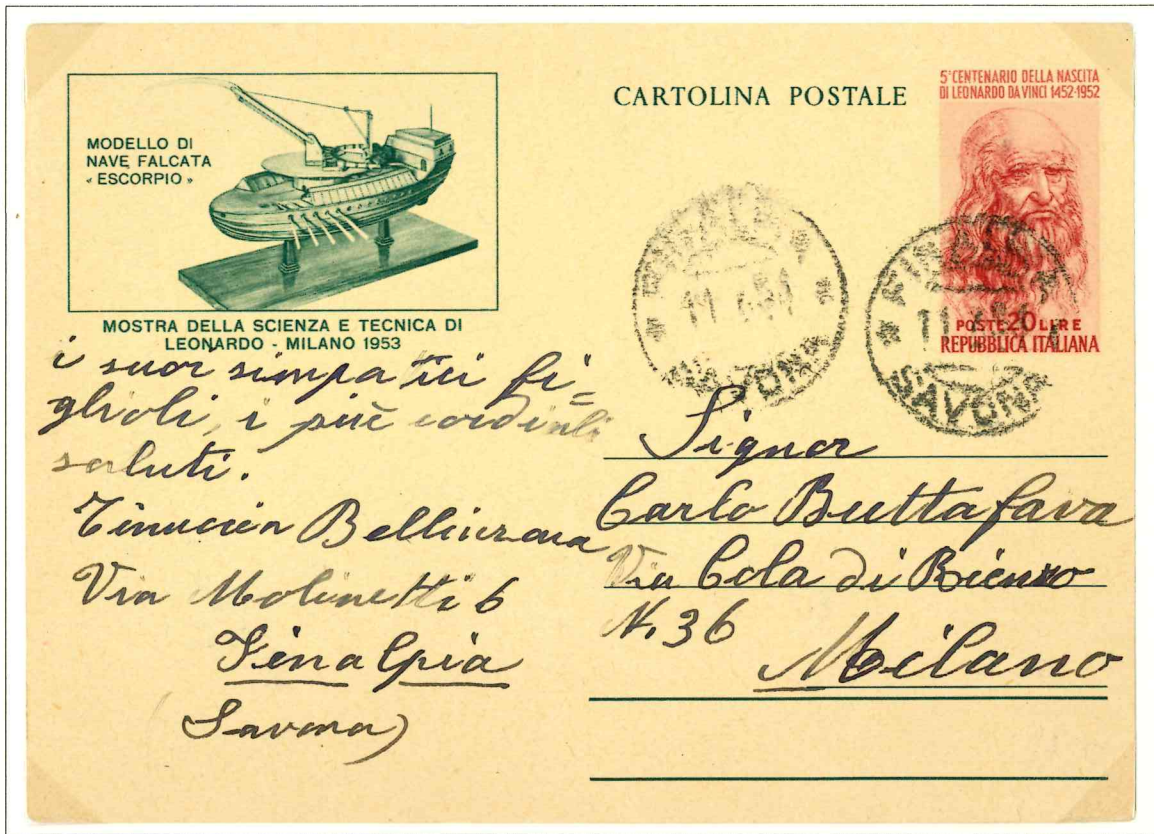 MODELLO DI
NAVE FALCATA
« ESCORPIO »
MOSTRA DELLA SCIENZA E TECNICA DI
LEONARDO - MILANO 1953
CARTOLINA POSTALE
5° CENTENARIO DELLA NASCITA
DI LEONARDO DA VINCI 1452-1952
POSTE 20 LIRE
REPUBBLICA ITALIANA
SAVONA
SAVONA
i suoi simpatici fi=
glioli, i più cordiali
saluti.
Via Molinetti 6
Finalpia
(Savona)
Signor
Carlo Buttafava
Via Cola di Rienzo
N. 36
Milano